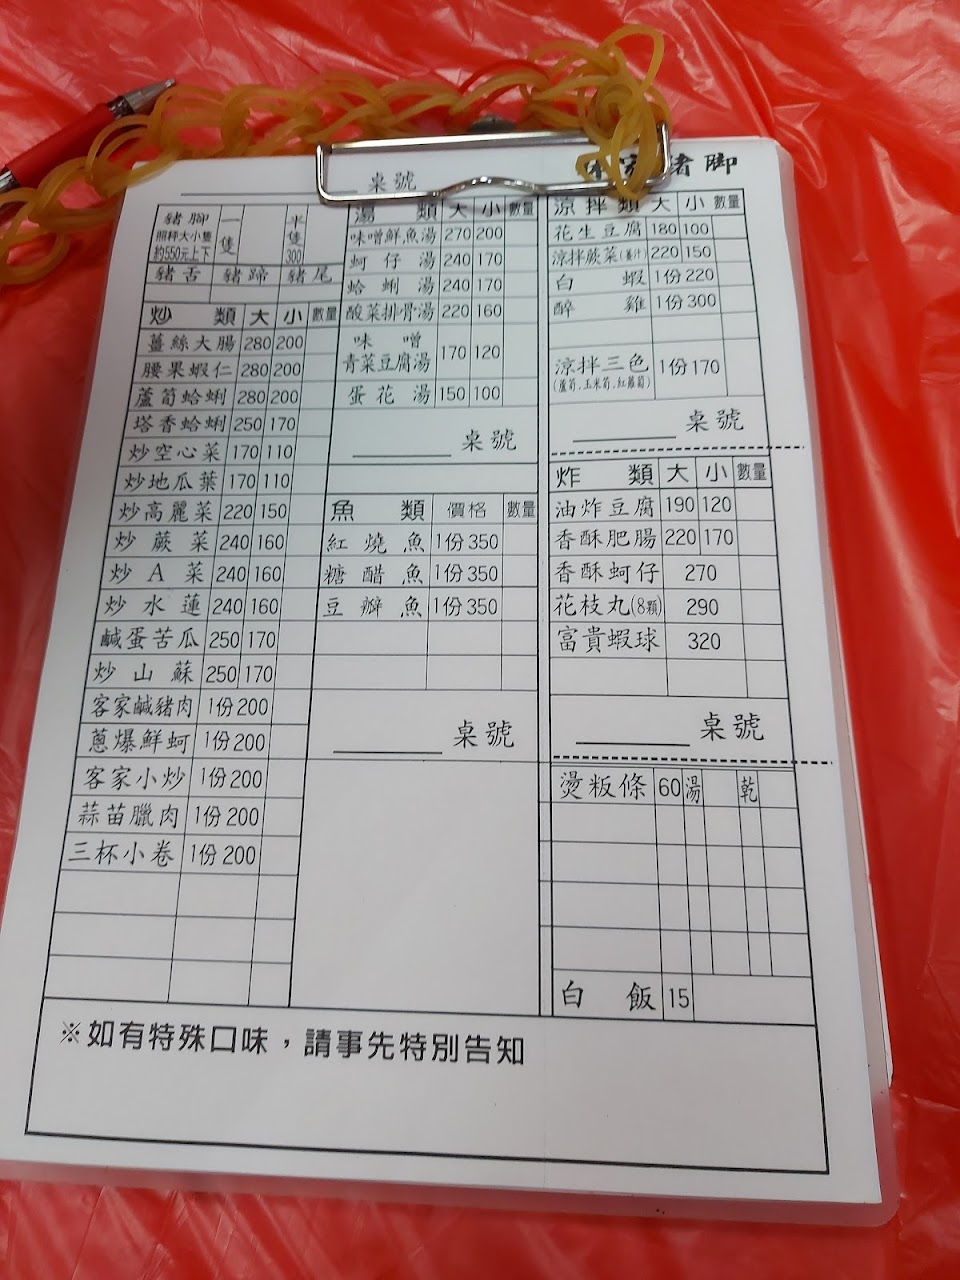 豬腳
桌號
豬腳 一隻 半隻300
照秤大小隻
約550元上下
豬舌 豬蹄 豬尾
炒類 大 小 數量
薑絲大腸 280 200
腰果蝦仁 280 200
蘆筍蛤蜊 280 200
塔香蛤蜊 250 170
炒空心菜 170 110
炒地瓜葉 170 110
炒高麗菜 220 150
炒蕨菜 240 160
炒A菜 240 160
炒水蓮 240 160
鹹蛋苦瓜 250 170
炒山蘇 250 170
客家鹹豬肉 1份200
蔥爆鮮蚵 1份200
客家小炒 1份200
蒜苗臘肉 1份200
三杯小卷 1份200
湯類 大 小 數量
味噌鮮魚湯 270 200
蚵仔湯 240 170
蛤蜊湯 240 170
酸菜排骨湯 220 160
味噌
青菜豆腐湯 170 120
蛋花湯 150 100
桌號
魚類 價格 數量
紅燒魚 1份350
糖醋魚 1份350
豆瓣魚 1份350
桌號
涼拌類 大 小 數量
花生豆腐 180 100
涼拌蕨菜(薑汁) 220 150
白蝦 1份220
醉雞 1份300
涼拌三色 1份170
(蘆筍.玉米筍.紅蘿蔔)
桌號
炸類 大 小 數量
油炸豆腐 190 120
香酥肥腸 220 170
香酥蚵仔 270
花枝丸(8顆) 290
富貴蝦球 320
桌號
燙粄條 60 湯 乾
白飯 15
※如有特殊口味，請事先特別告知